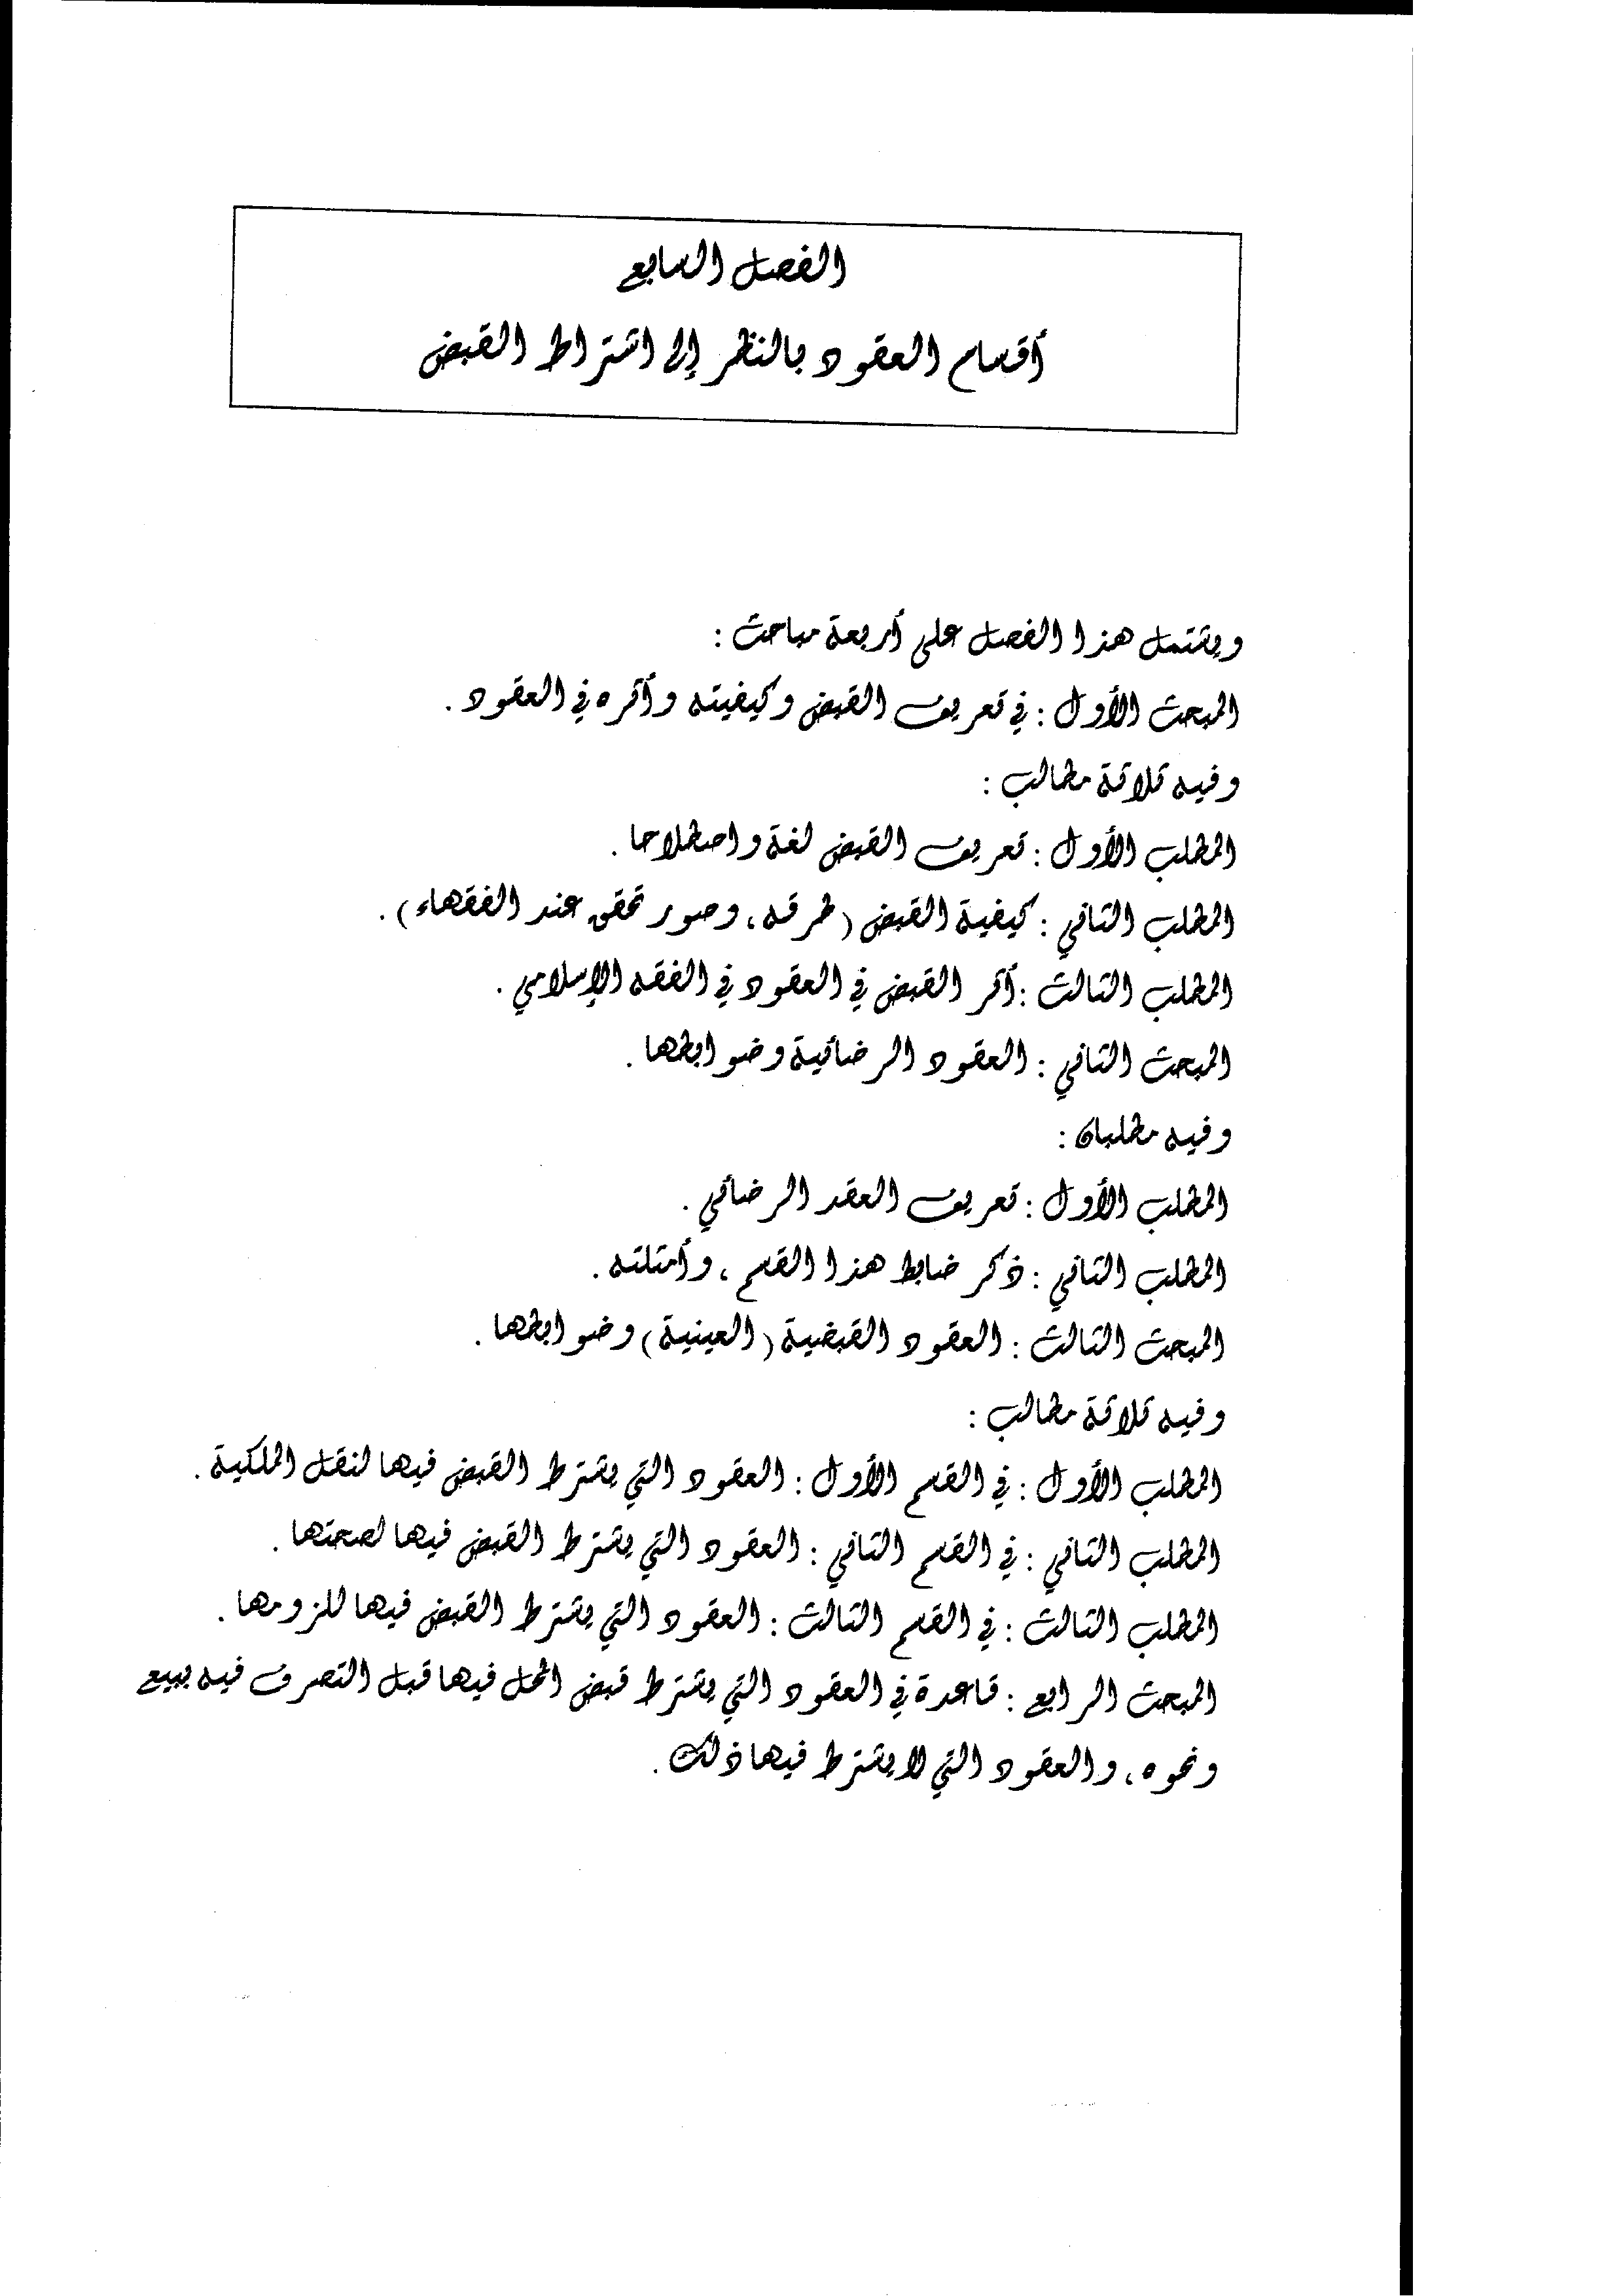 الفصل السابع
أقسام العقود بالنظر إلى اشتراط القبض
ويشتمل هذا الفصل على أربعة مباحث :
المبحث الأول : في تعريف القبض وكيفيته وأثره في العقود .
وفيه ثلاثة مطالب :
المطلب الأول : تعريف القبض لغة واصطلاحا .
المطلب الثاني : كيفية القبض (طرقه، وصور تحقق عند الفقهاء) .
المطلب الثالث : أثر القبض في العقود في الفقه الإسلامي .
المبحث الثاني : العقود الرضائية وضوابطها .
وفيه مطلبان :
المطلب الأول : تعريف العقد الرضائي .
المطلب الثاني : ذكر ضابط هذا القسم ، وأمثلته .
المبحث الثالث : العقود القبضية (العينية) وضوابطها .
وفيه ثلاثة مطالب :
المطلب الأول : في القسم الأول : العقود التي يشترط القبض فيها لنقل الملكية .
المطلب الثاني : في القسم الثاني : العقود التي يشترط القبض فيها لصحتها .
المطلب الثالث : في القسم الثالث : العقود التي يشترط القبض فيها للزومها .
المبحث الرابع : قاعدة في العقود التي يشترط قبض المحل فيها قبل التصرف فيه ببيع
ونحوه ، والعقود التي لا يشترط فيها ذلك .